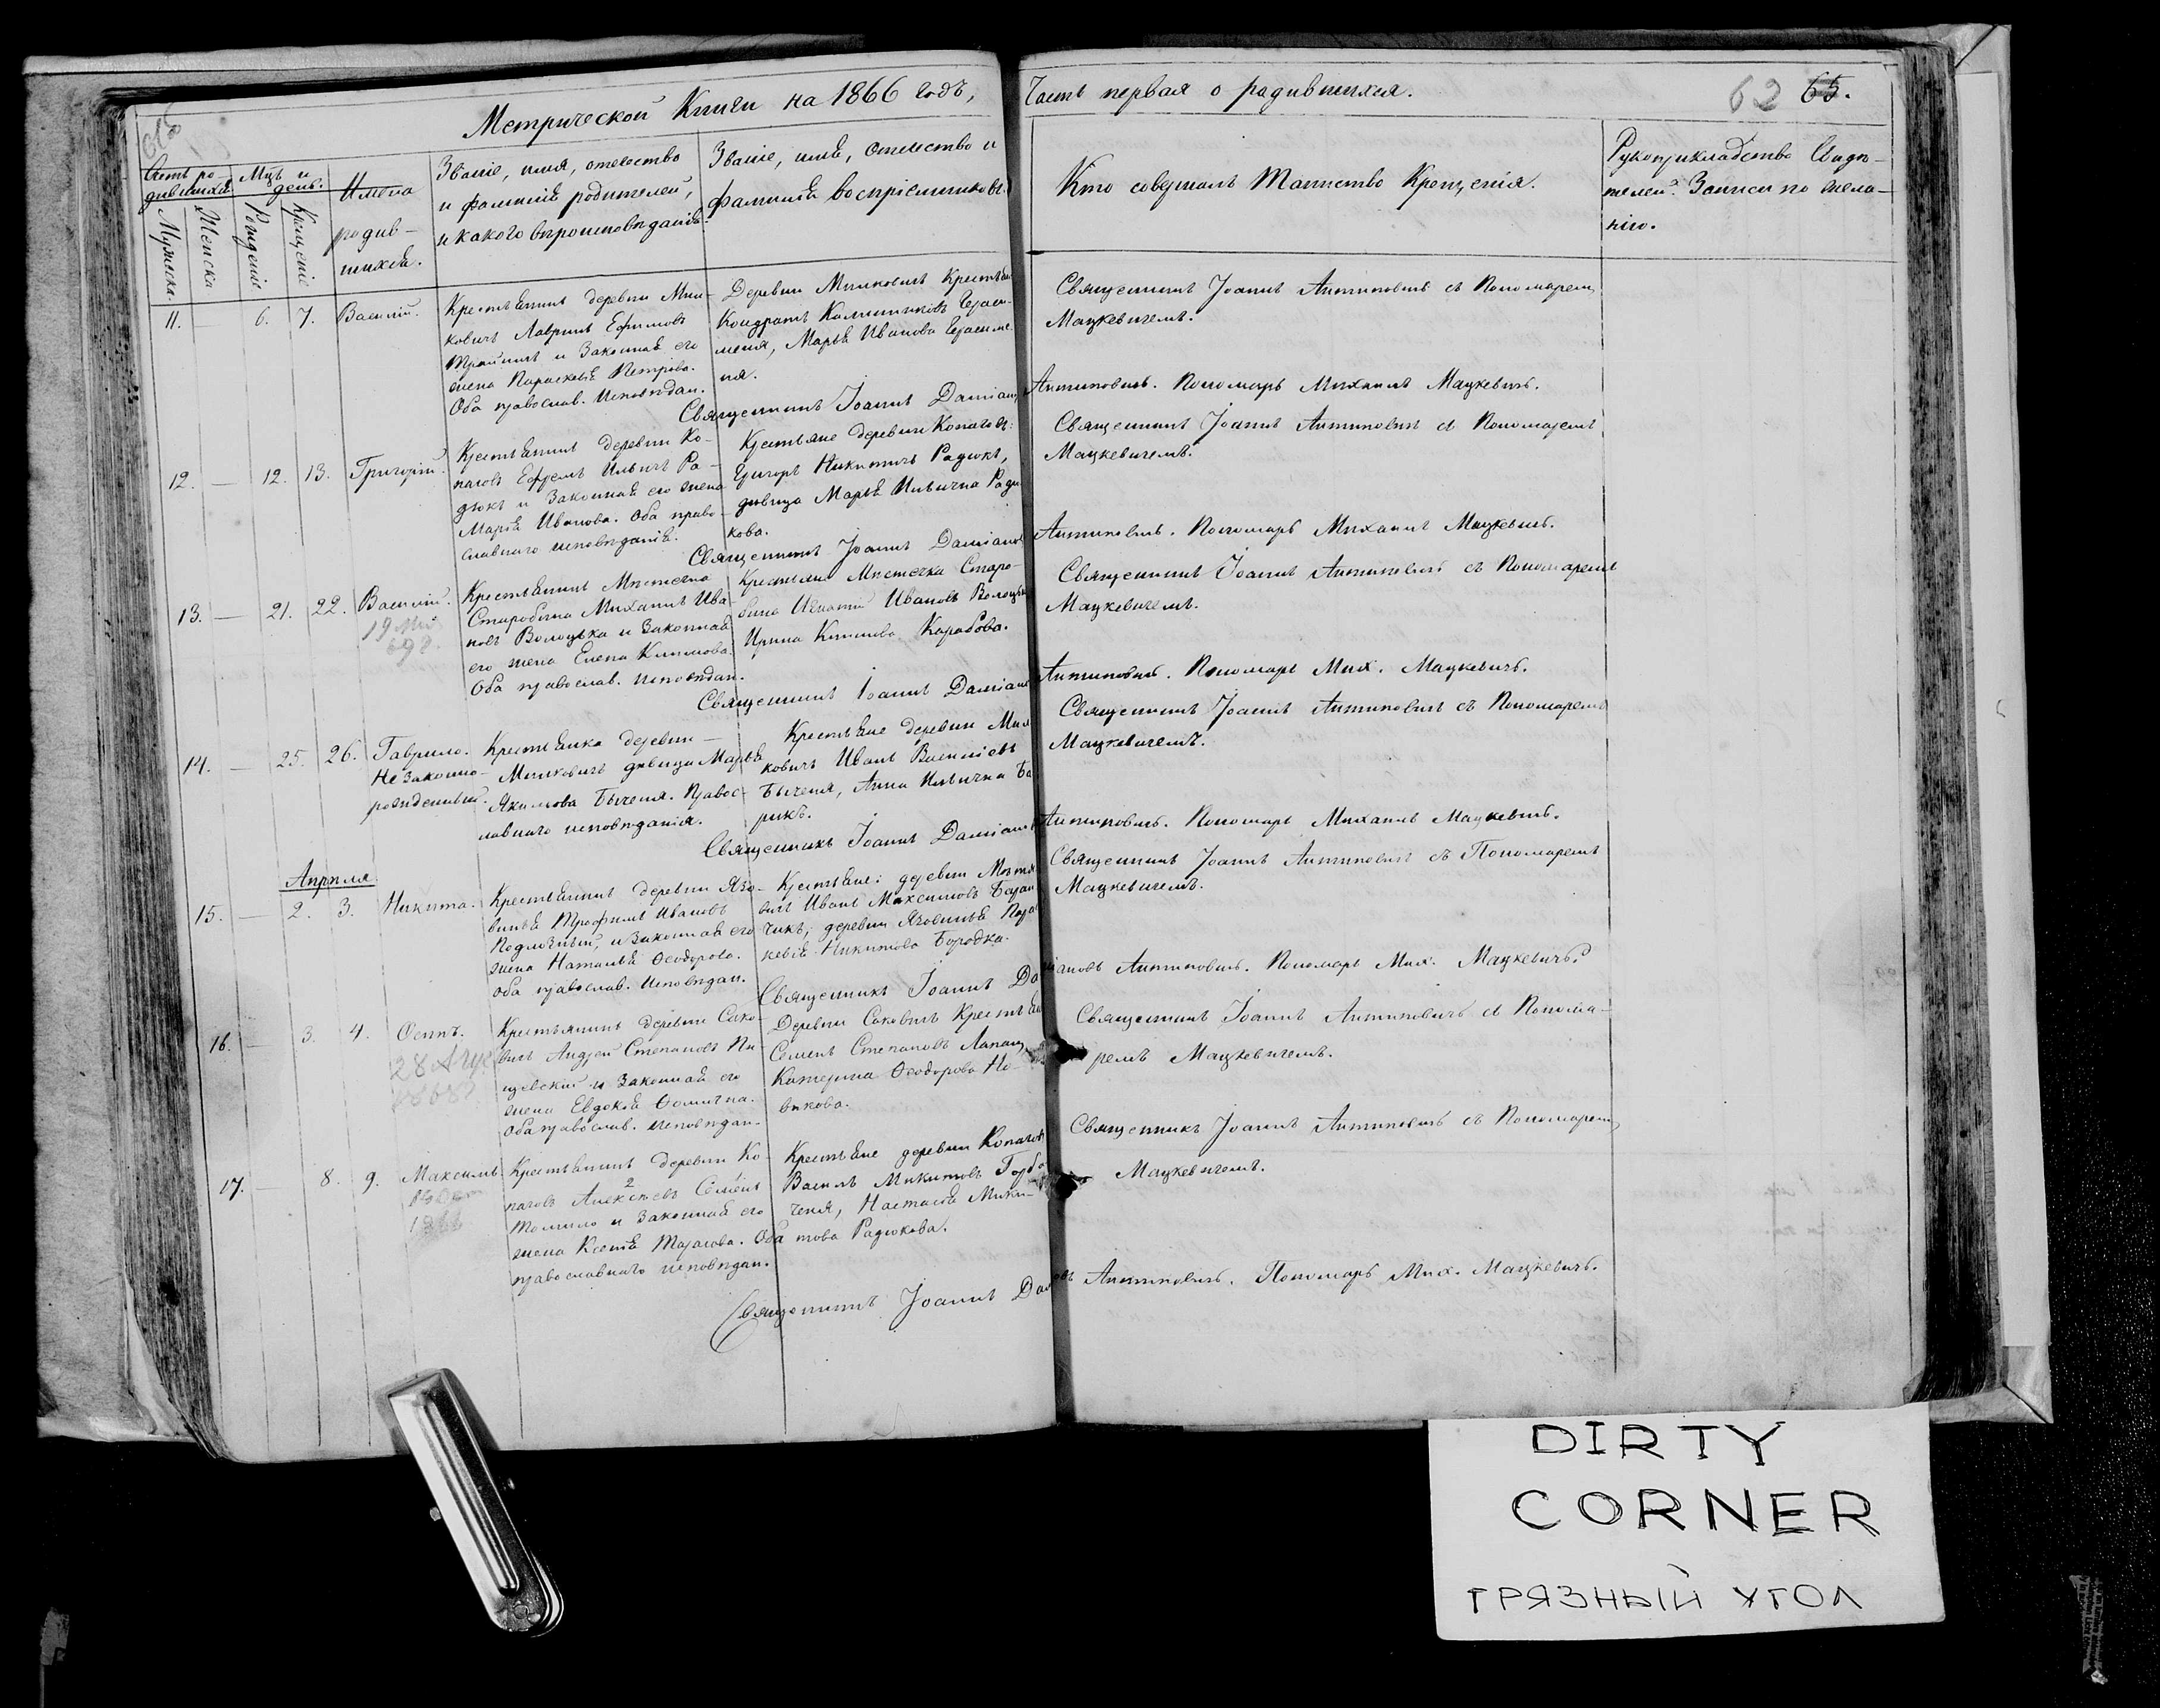 Метрической Книги на 1866 годъ,
Часть первая о родившихся.
62 65.
Счетъ ро-
дившихся
Мужеска.
Женска
Мцъ и
день.
Рожденія
Крещенія
Имена
родив-
шихся.
Званіе, имя, отечество
и фамилія родителей,
и какого вѣроисповѣданія.
Званіе, имя, отечество и
фамилія воспріемниковъ.
Кто совершалъ Таинство Крещенія.
Рукоприкладство Свидѣ-
телей Записи по жела-
нію.
11. 6. 7. Василій.
Крестьянинъ деревни Мил-
ковичъ Лавринъ Ефимовъ
и Законная его
жена Параскевія Петрова.
Оба православ. Исповѣдан.
Деревни Милковичъ Крестьяне
Кондратъ
Марья Иванова
ня.
Священникъ Іоаннъ Антиповичъ съ Пономарем
Мацкевичемъ.
Священникъ Іоаннъ Даміан Антиповичъ. Пономарь Михаилъ Мацкевичъ.
12. — 12. 13. Григорій.
Крестьянинъ деревни Ко-
пачовъ Ефремъ Ильичъ Ра-
дюкъ и Законная его жена
Марія Иванова. Оба право-
славнаго исповѣданія.
Крестьяне деревни Копачовъ
Григорь Никитичъ Радюкъ,
дѣвица Марья Ильична Радю
кова.
Священникъ Іоаннъ Антиповичъ съ Пономаремъ
Мацкевичемъ.
Священникъ Іоаннъ Даміановъ Антиповичъ. Пономарь Михаилъ Мацкевичъ.
13. — 21. 22. Василій.
Крестьянинъ Мѣстечка
Старобина Михаилъ Ива-
новъ Волоцька и Законная
его жена Елена Климова.
Оба православ. исповѣдан.
Крестьяне Мѣстечка Старо-
бина Игнатій Ивановъ Волоцька
Ирина Климова Карабова.
Священникъ Іоаннъ Антиповичъ съ Пономаремъ
Мацкевичемъ.
Священникъ Іоаннъ Даміанов Антиповичъ. Пономарь Мих. Мацкевичъ.
14. — 25. 26. Гаврило.
Незаконно-
рожденный.
Крестьянка деревни —
Милковичъ дѣвица Марья
Якимова Быченя. Правос-
лавнаго исповѣданія.
Крестьяне деревни Мил
ковичъ Иванъ Василіевъ
Быченя, Анна Ильична Ба
рикъ.
Священникъ Іоаннъ Антиповичъ съ Пономаремъ
Мацкевичемъ.
Священникъ Іоаннъ Даміан Антиповичъ. Пономарь Михаилъ Мацкевичъ.
Апрѣля
15. — 2. 3. Никита.
Крестьянинъ деревни Язо-
винья Трофимъ Ивановъ
Подлозный, и Законная его
жена Наталья Ѳеодорова.
Оба православ. Исповѣдан.
Крестьяне: деревни
Иванъ Максимовъ Баран
чикъ, деревни Язовинья Пара
кевія Никитова Бородка.
Священникъ Іоаннъ Антиповичъ съ Пономаремъ
Мацкевичемъ.
Священникъ Іоаннъ Даміановъ Антиповичъ. Пономарь Мих. Мацкевичъ.
16. — 3. 4. Осипъ.
Крестьянинъ деревни Сако-
вичъ Андрей Степановъ Пи-
щевскій и Законная его
жена Евдокія Ѳомична.
Оба православ. исповѣдан.
Деревни Саковичъ Крестьяне
Семенъ Степановъ Лапац
Катерина Ѳеодорова Но-
викова.
Священникъ Іоаннъ Антиповичъ съ Понома-
ремъ Мацкевичемъ.
17. — 8. 9. Максимъ
Крестьянинъ деревни Ко-
пачовъ Алексѣевъ Семенъ
Томило и Законная его
жена Ксенія Тарасова. Оба
православнаго исповѣдан.
Крестьяне деревни Копачовъ
Василь Микитовъ Горба
ченя, Настасія Мики-
това Радюкова.
Священникъ Іоаннъ Антиповичъ съ Пономарем
Мацкевичемъ.
Священникъ Іоаннъ Антиповичъ. Пономарь Мих. Мацкевичъ.
DIRTY
CORNER
ГРЯЗНЫЙ УГОЛ